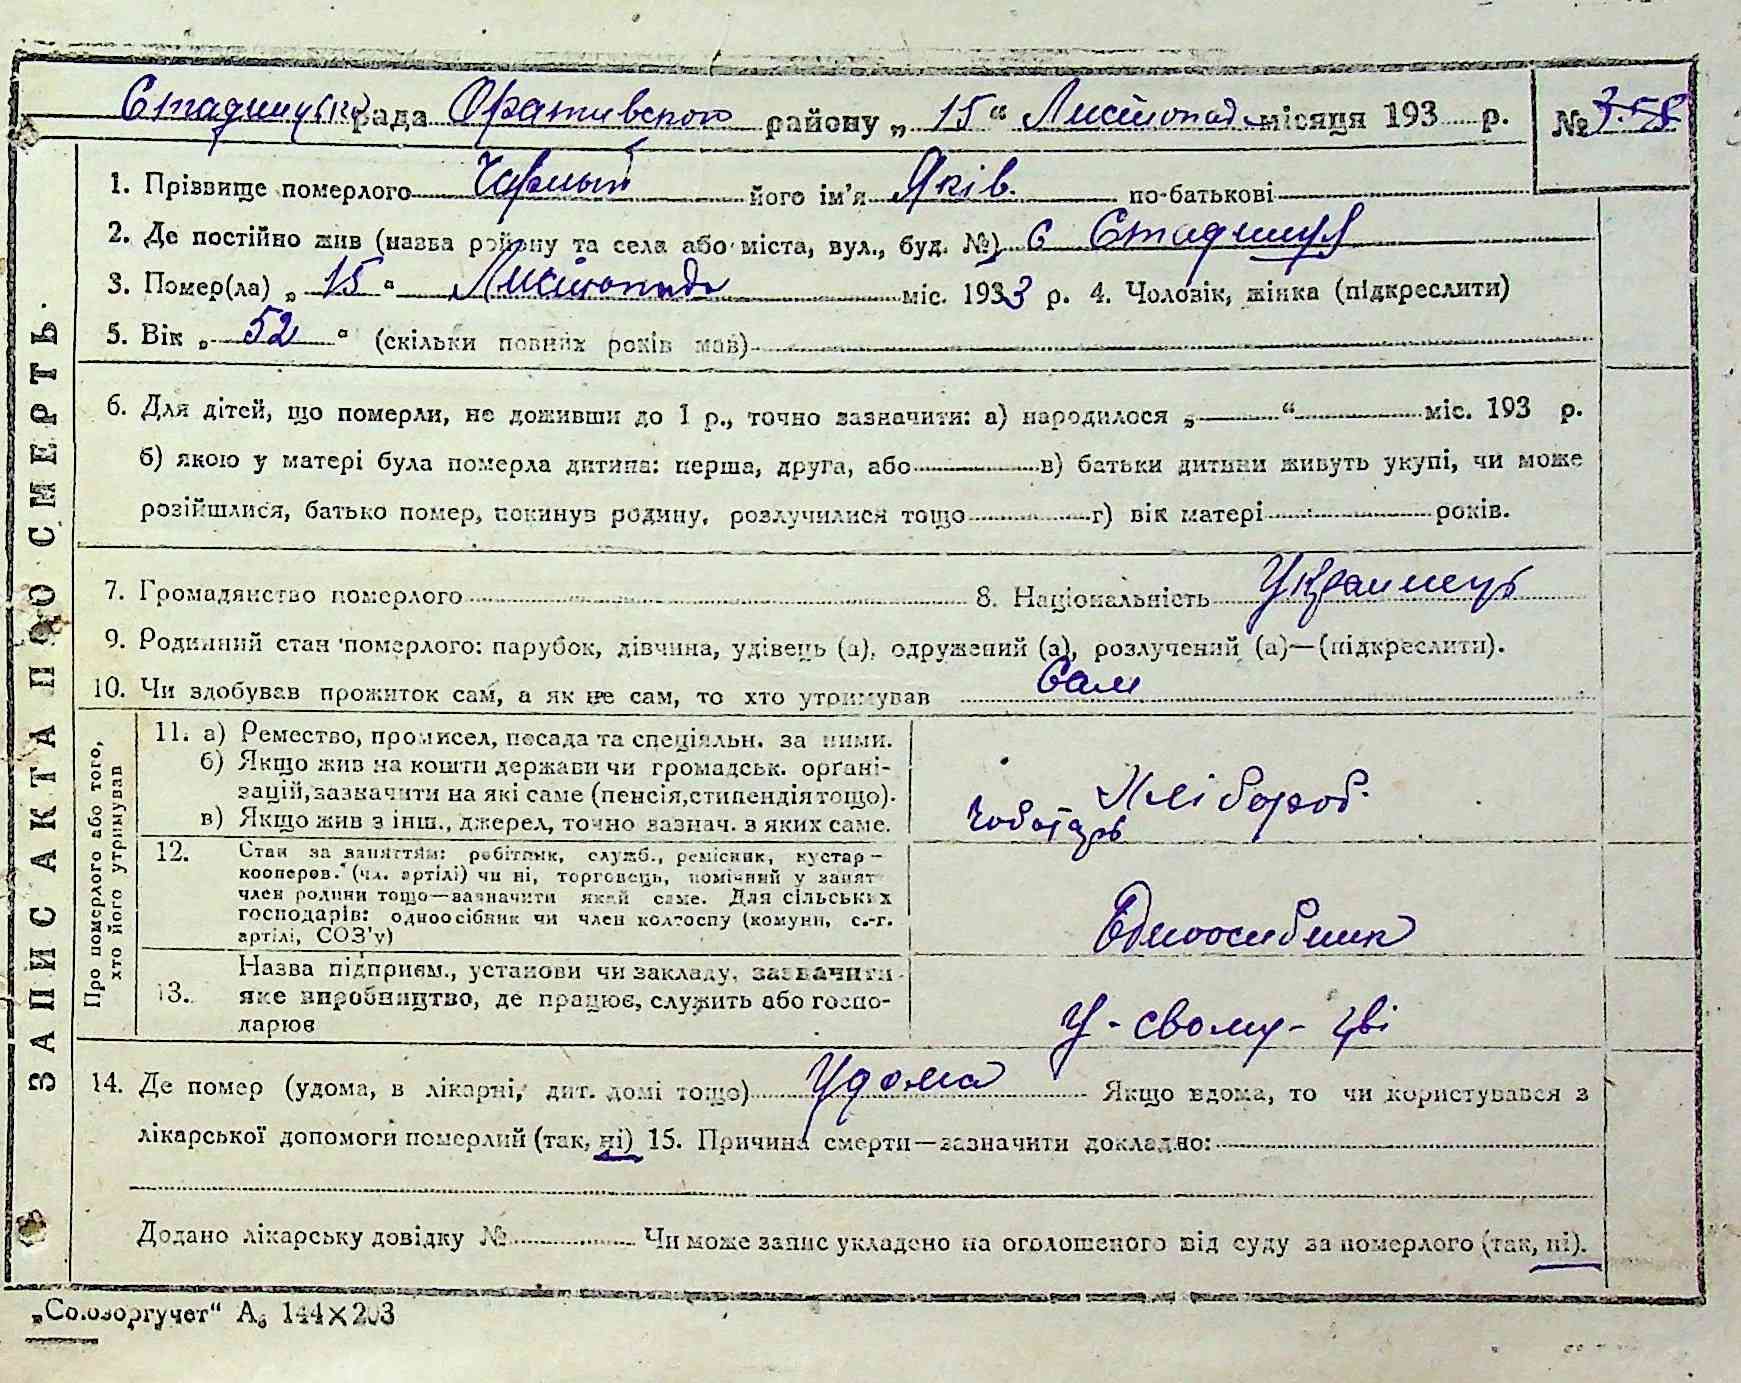 Стадницька рада Оратівського району „ 15 “ Листопада місяця 193 р. № 358
1. Прізвище померлого Чорный його ім’я Яків. по-батькові
2. Де постійно жив (назва району та села або міста, вул., буд. №) с Стадниця
3. Помер(ла) „ 15 “ Листопада міс. 1933 р. 4. Чоловік, жінка (підкреслити)
5. Вік „ 52 “ (скільки повних років мав)
6. Для дітей, що померли, не доживши до 1 р., точно зазначити: а) народилося „ “ міс. 193 р.
б) якою у матері була померла дитина: перша, друга, або в) батьки дитини живуть укупі, чи може
розійшлися, батько помер, покинув родину, розлучилися тощо г) вік матері років.
7. Громадянство померлого 8. Національність Українець
9. Родинний стан померлого: парубок, дівчина, удівець (а), одружений (а), розлучений (а)—(підкреслити).
10. Чи здобував прожиток сам, а як не сам, то хто утримував Сам
11. а) Ремество, промисел, посада та спеціяльн. за ними.
б) Якщо жив на кошти держави чи громадськ. орґані-
зацій, зазначити на які саме (пенсія, стипендія тощо).
в) Якщо жив з інш., джерел, точно зазнач. з яких саме.
Хлібороб.
Чоботарь
12. Стан за заняттям: робітник, служб., ремісник, кустар—
кооперов. (чл. артілі) чи ні, торговець, помічний у занят
член родини тощо—зазначити який саме. Для сільських
господарів: одноосібник чи член колгоспу (комуни, с.-г.
артілі, СОЗ’у)
Єдноосибник
13. Назва підприєм., установи чи закладу, зазначити
яке виробництво, де працює, служить або госпо-
дарює
У-свому-гві
14. Де помер (удома, в лікарні, дит. домі тощо) Удома Якщо вдома, то чи користувався з
лікарської допомоги померлий (так, ні) 15. Причина смерти—зазначити докладно:
Додано лікарську довідку № Чи може запис укладено на оголошеного від суду за померлого (так, ні).
ЗАПИС АКТА ПРО СМЕРТЬ.
Про померлого або того,
хто його утримував
„Союзоргучет“ А₆ 144×203